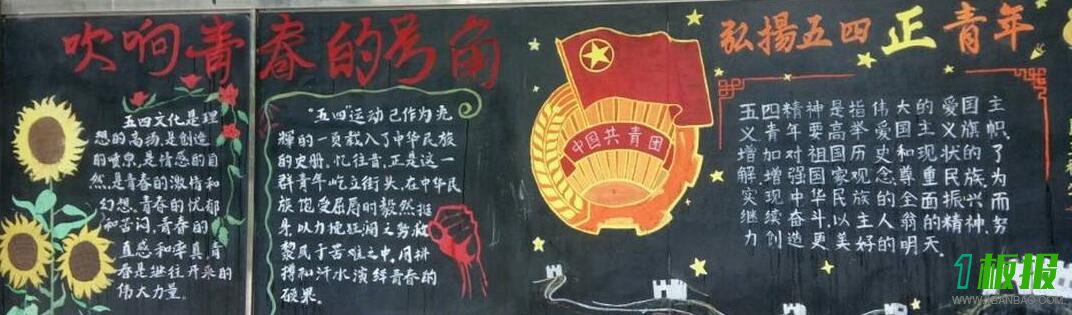 吹响青春的号角
五四文化是理
想的高扬,是创造
的喷泉,是情感的自
然,是青春的激情和
幻想,青春的忧郁
和苦闷,青春的
直感和率真,青
春是继往开来的
伟大力量。
"五四"运动已作为光
辉的一页载入了中华民族
的史册,忆往昔,正是这一
群青年屹立街头,在中华民
族饱受屈辱时毅然挺
身,以力挽狂澜之势救
黎民于苦难之中,用拼
搏和汗水演绎青春的
硕果。
中国共青团
弘揚五四正青年
五四精神是指伟大的爱国主
义,青年要高举爱国主义旗帜,
增加对祖国历史和现状的了
解,增强国家观念,尊重民族,为
实现中华民族的全面振兴而
继续奋斗,以主人翁的精神,努
力创造更美好的明天。
1板报
WWW.1BANBAO.COM